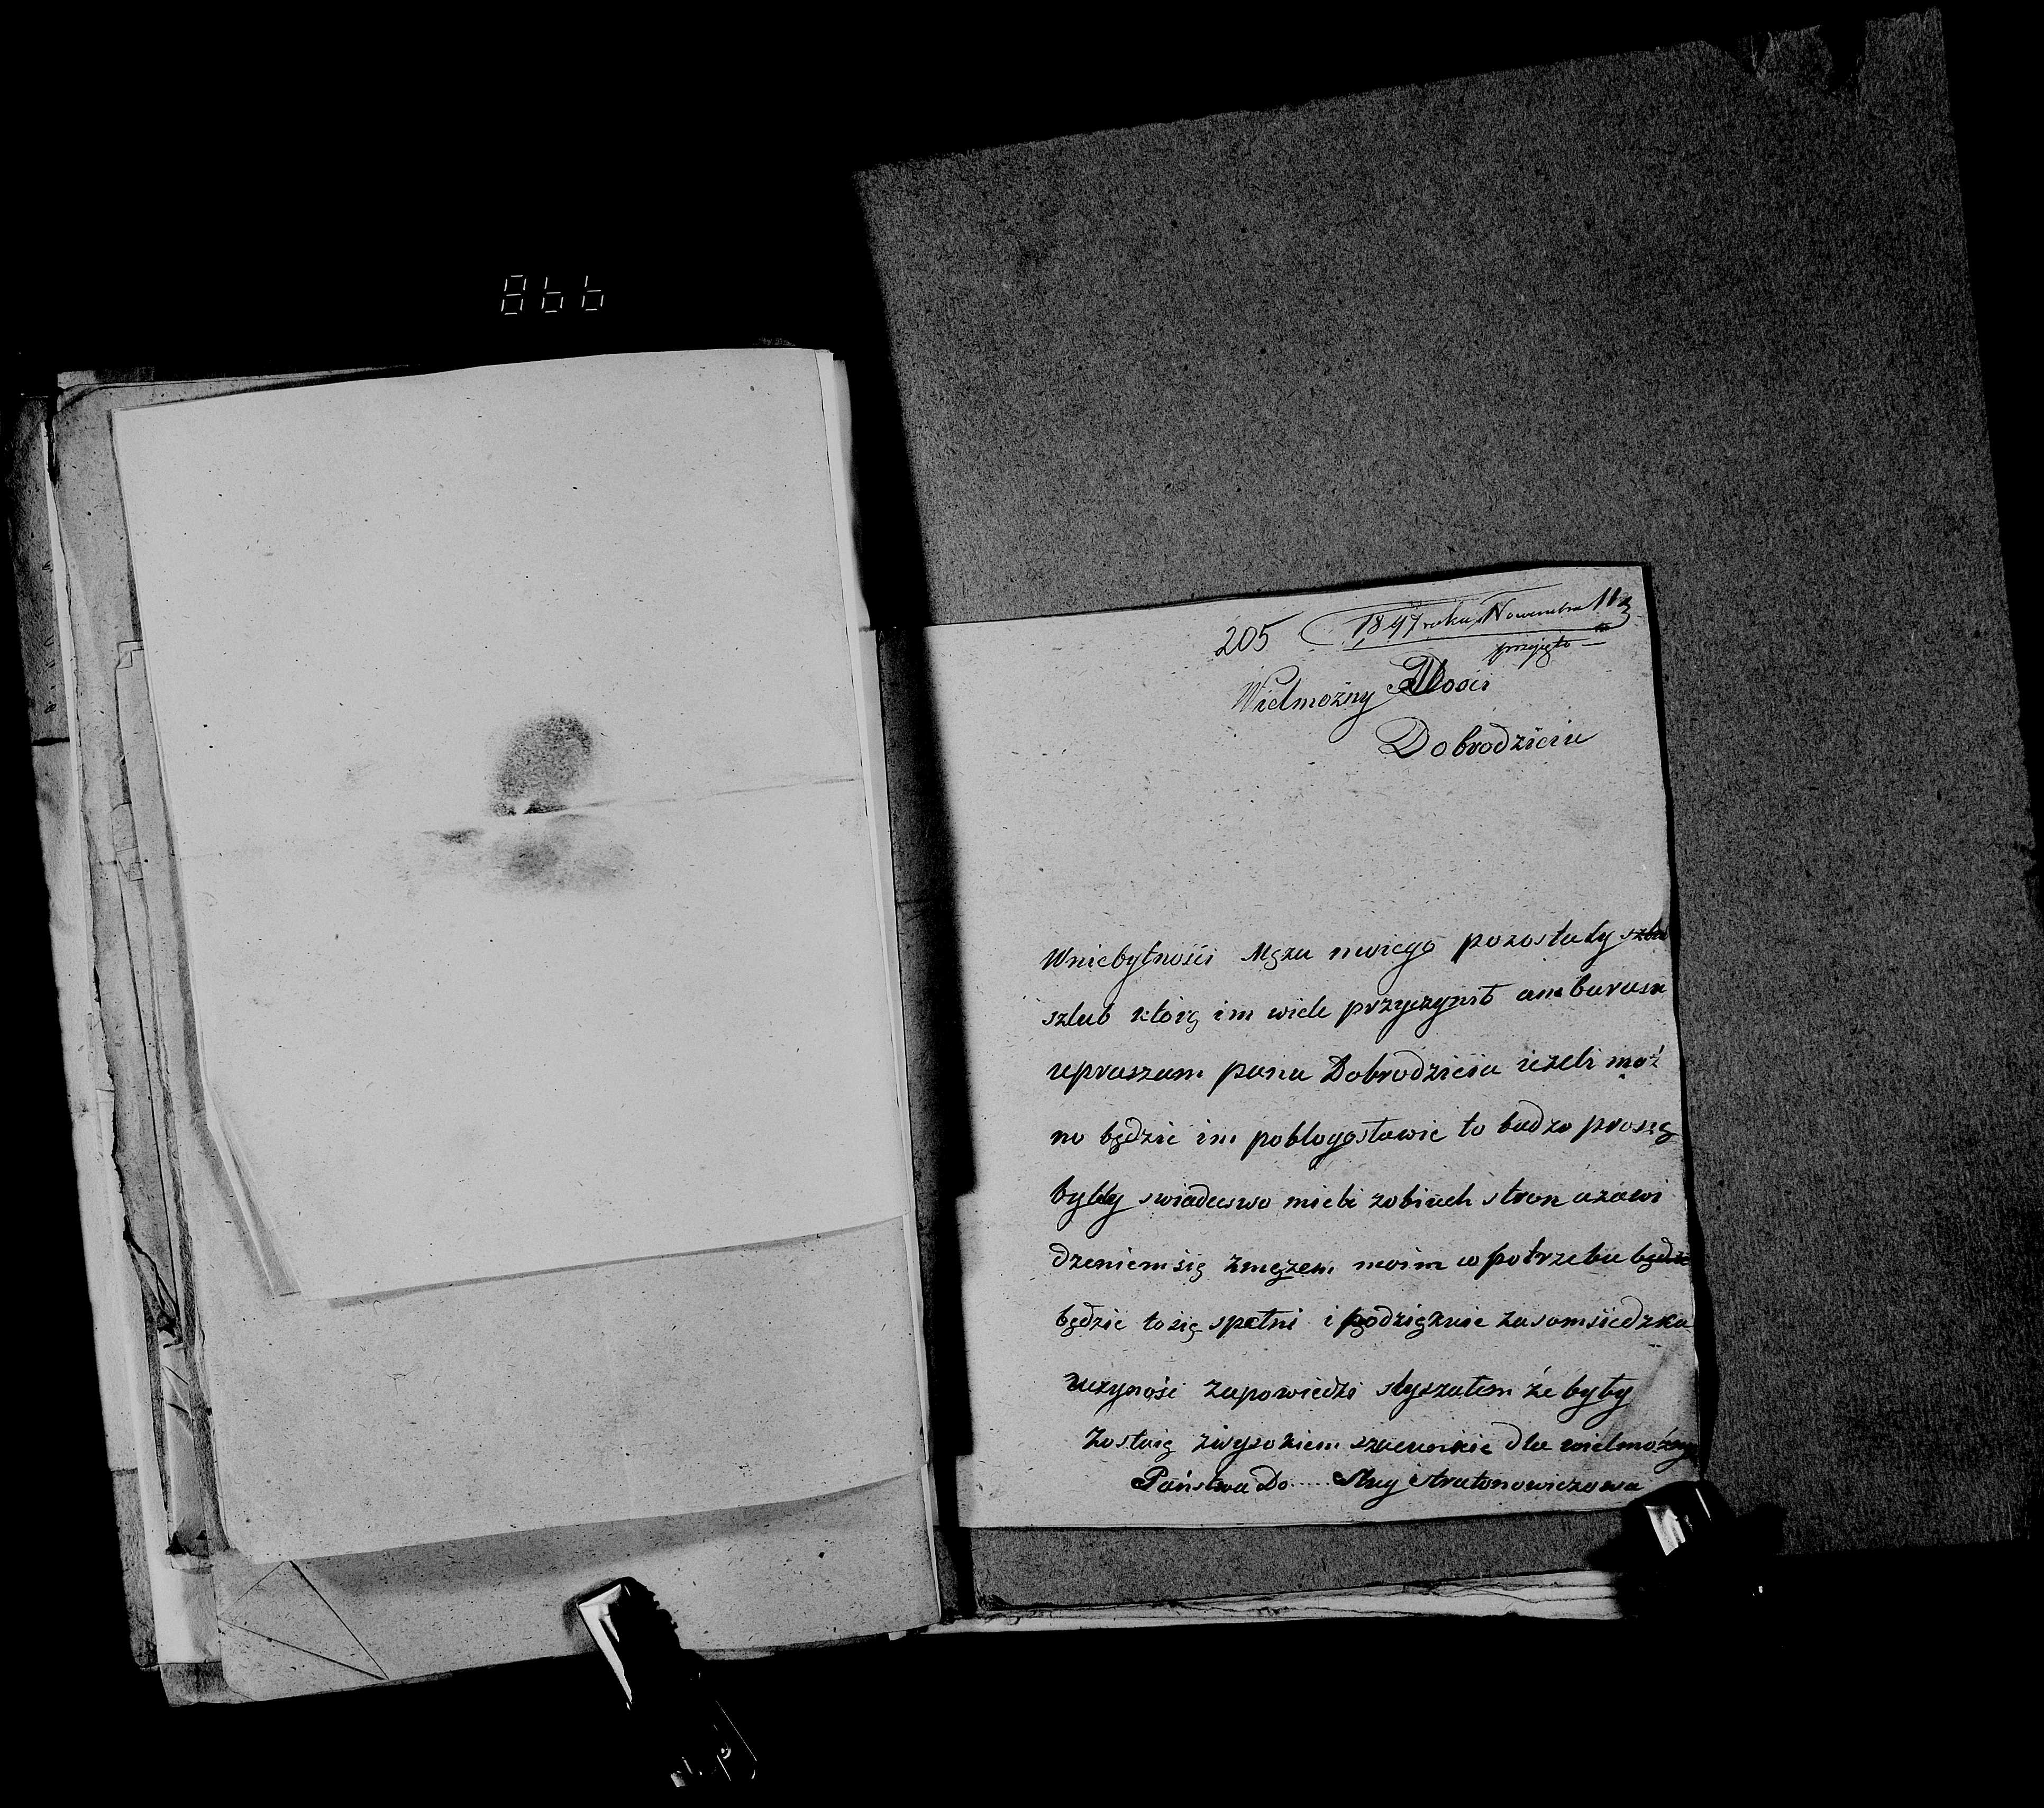 866
205 1847 roku Nowembra 11
przyięto
Wielmożny Mości
Dobrodzieiu
W niebytności Męża moiego pozostały szlub
szlub który im wiele przyczynił ambarasu
upraszam pana Dobrodzieia ieżeli moż
no będzie im pobłogosławic to badzo proszę
byłly swiadecswo mieli zobiuch stron azawi
dzeniem się zmężem moim w potrzebie będzie
będzie to się spełni i podziękuie zasomsiedzka
uczyność zapowiedzi słyszałem że były
Zostaię zwysokiem szacunkie dla wielmożny
Państwa Do.... Sług Stratonowiczowa